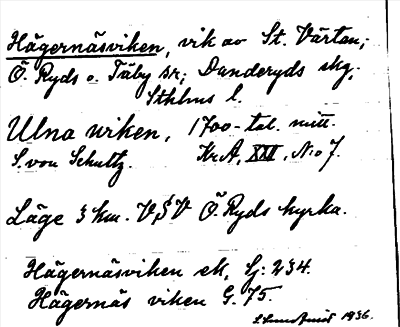 Hägernäsviken, vik av St. Värtan;
Ö. Ryds o. Täby sr; Danderyds skg;
Sthlms l.
Ulna wiken, 1700-tal. mitt.
S. von Schultz. KrA, XXI, No 7.
Läge 3 km. V,SV Ö. Ryds kyrka.
Hägernäsviken ek, Gj: 234.
Hägernäs viken G. 75.
1936.